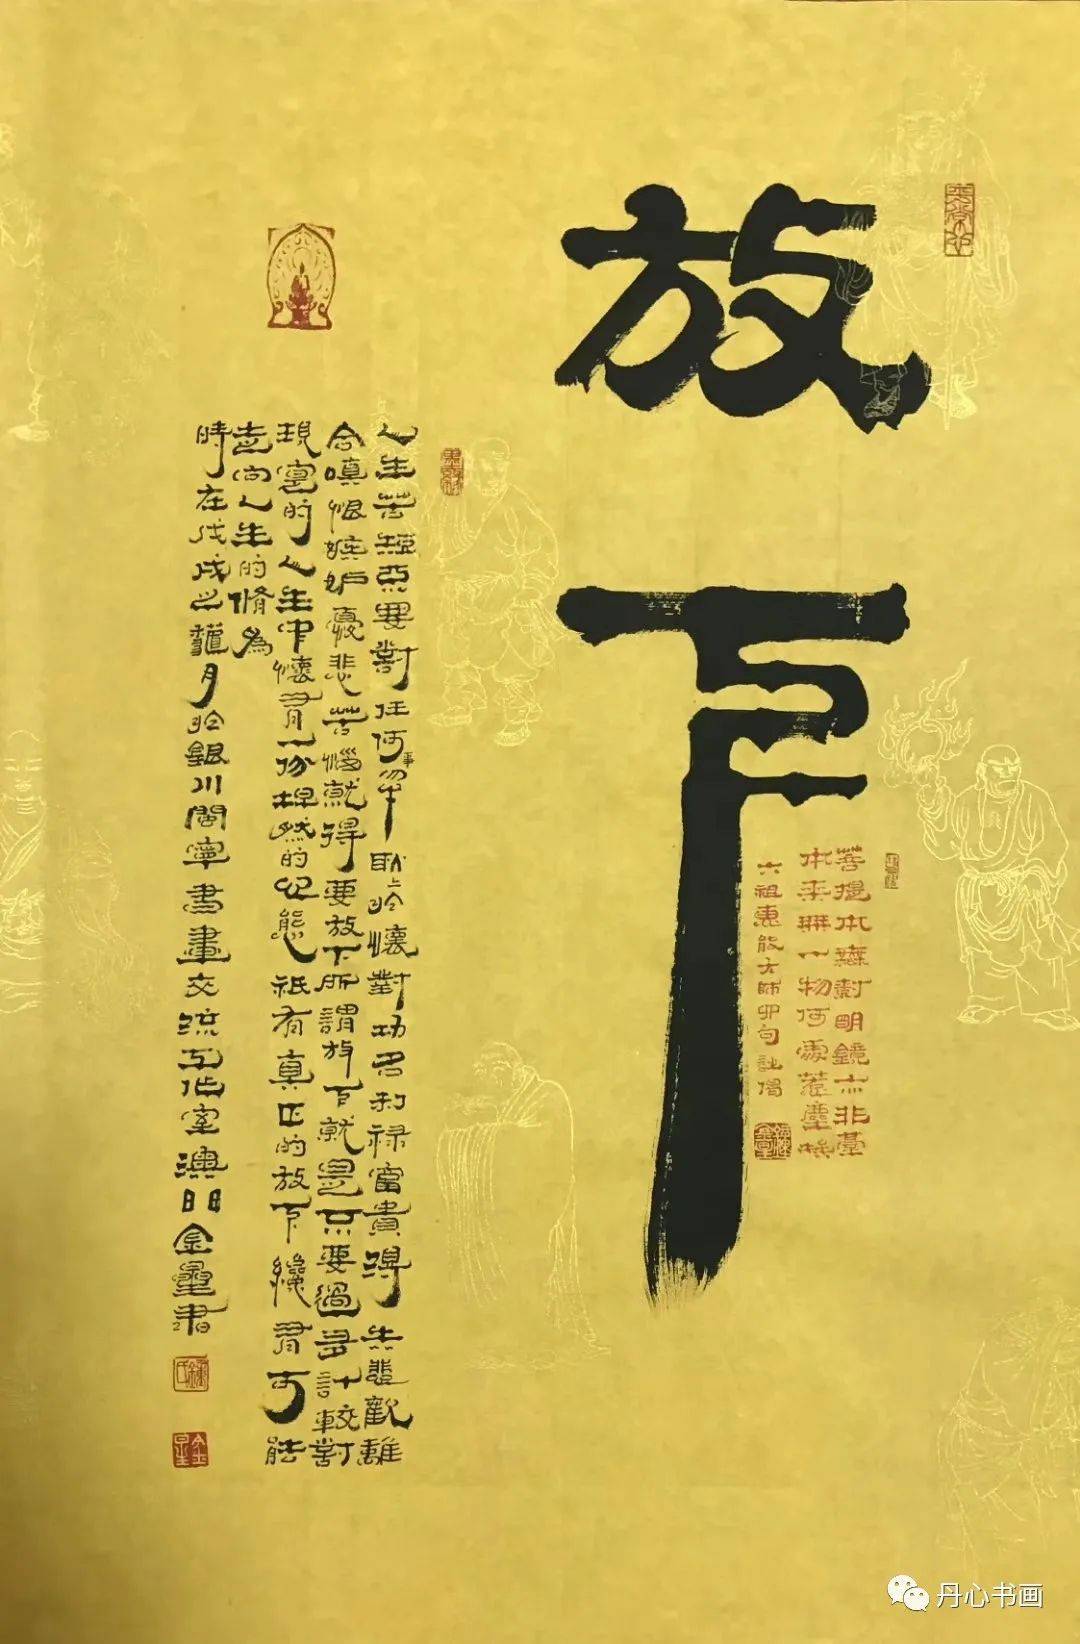 放下
菩提本無樹明鏡亦非臺
本來無一物何處惹塵埃
六祖惠能大師四句諔偈
人生苦短亞要對任何事舉耿於懷對功名利祿富貴得失悲觀離
合嗔恨嫉妒憂悲苦惱就得要放下所謂放下就是不要過多計較對
現實的人生中懷有一份坦然的心態祇有真正的放下纔有可能
走向人生的脩為
時在戊戌之龍月於銀川閩寧書畫交流工作室澳門金量書
丹心书画